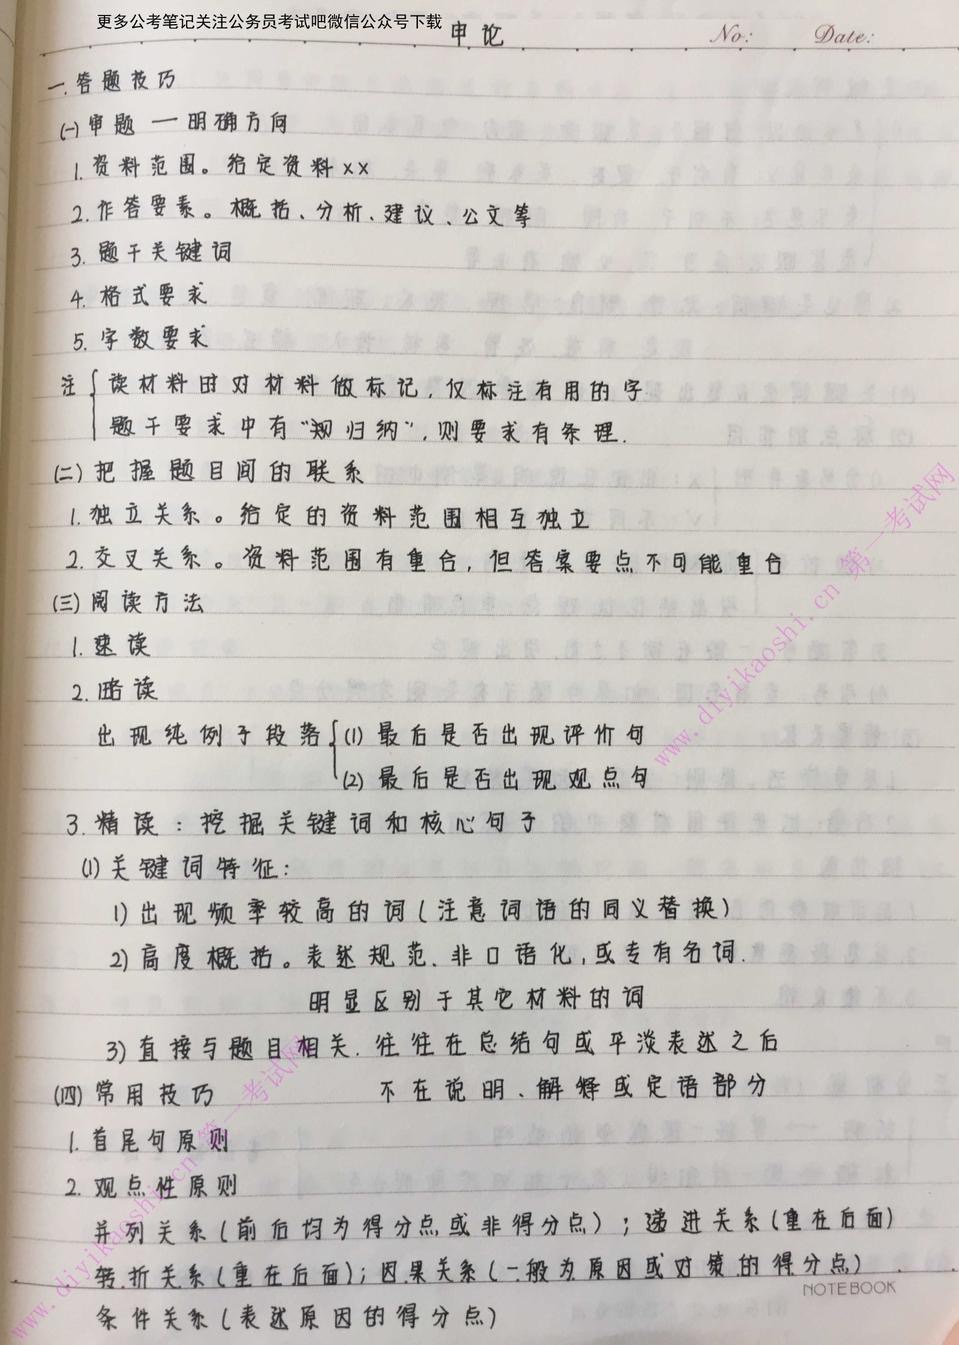 更多公考笔记关注公务员考试吧微信公众号下载
申论
No: Date:
一.答题技巧
(一)审题 — 明确方向
1.资料范围。给定资料xx
2.作答要素。概括、分析、建议、公文等
3.题干关键词
4.格式要求
5.字数要求
注 读材料时对材料做标记,仅标注有用的字
题干要求中有“归纳”,则要求有条理.
(二)把握题目间的联系
1.独立关系。给定的资料范围相互独立
2.交叉关系。资料范围有重合,但答案要点不可能重合
(三)阅读方法
1.速读
2.略读
出现纯例子段落 (1)最后是否出现评价句
(2)最后是否出现观点句
3.精读:挖掘关键词和核心句子
(1)关键词特征:
1)出现频率较高的词(注意词语的同义替换)
2)高度概括。表述规范、非口语化,或专有名词.
明显区别于其它材料的词
3)直接与题目相关.往往在总结句或平淡表述之后
(四)常用技巧 不在说明、解释或定语部分
1.首尾句原则
2.观点性原则
并列关系(前后均为得分点或非得分点);递进关系(重在后面)
转折关系(重在后面);因果关系(一般为原因或对策的得分点)
条件关系(表述原因的得分点)
NOTEBOOK
www.diyikaoshi.cn 第一考试网
www.diyikaoshi.cn 第一考试网